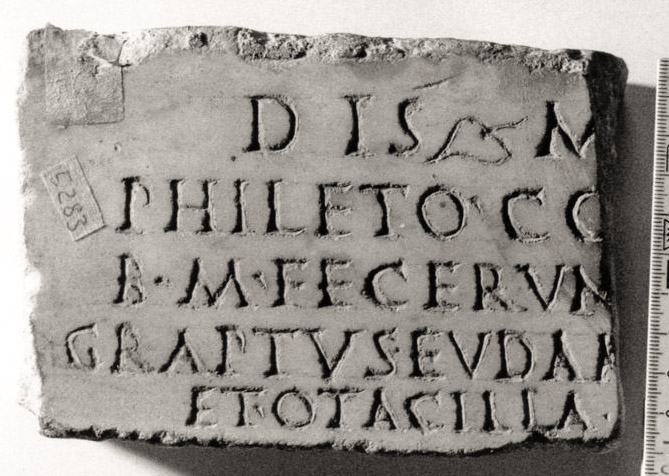 DIS M
PHILETO CO
5283
B·M·FECERVN
GRAPTVS·EVDAE
ET·OTACILIA·